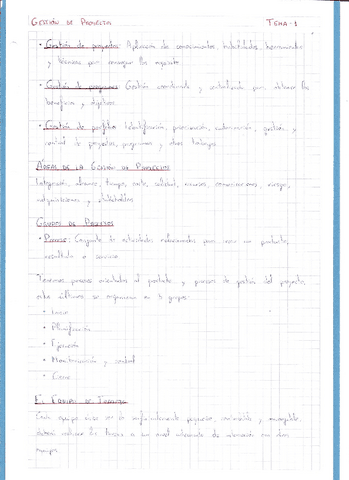 GESTIÓN DE PROYECTOS TEMA-1
• Gestión de proyectos: Aplicación de conocimientos, habilidades, herramientas
y técnicas para conseguir los
• Gestión de programas: Gestión coordinada y para obtener
beneficios y objetivos
• Gestión de portfolio: Identificación, priorización, gestión y
control de proyectos, programas y otros trabajos.
ÁREAS DE LA GESTIÓN DE PROYECTOS
Integración, alcance, tiempo, coste, calidad, recursos, comunicaciones, riesgos,
adquisiciones y stakeholders
GRUPOS DE PROCESOS
• Proceso: Conjunto de actividades relacionadas para crear un producto,
resultado o servicio
Tenemos procesos orientados al producto y procesos de gestión del proyecto,
estos últimos se organizan en 5 grupos:
• Inicio
• Planificación
• Ejecución
• Monitorización y control
• Cierre
EL EQUIPO DE TRABAJO
Cada equipo ser lo suficientemente pequeño, y manejable,
deberá realizar
equipos